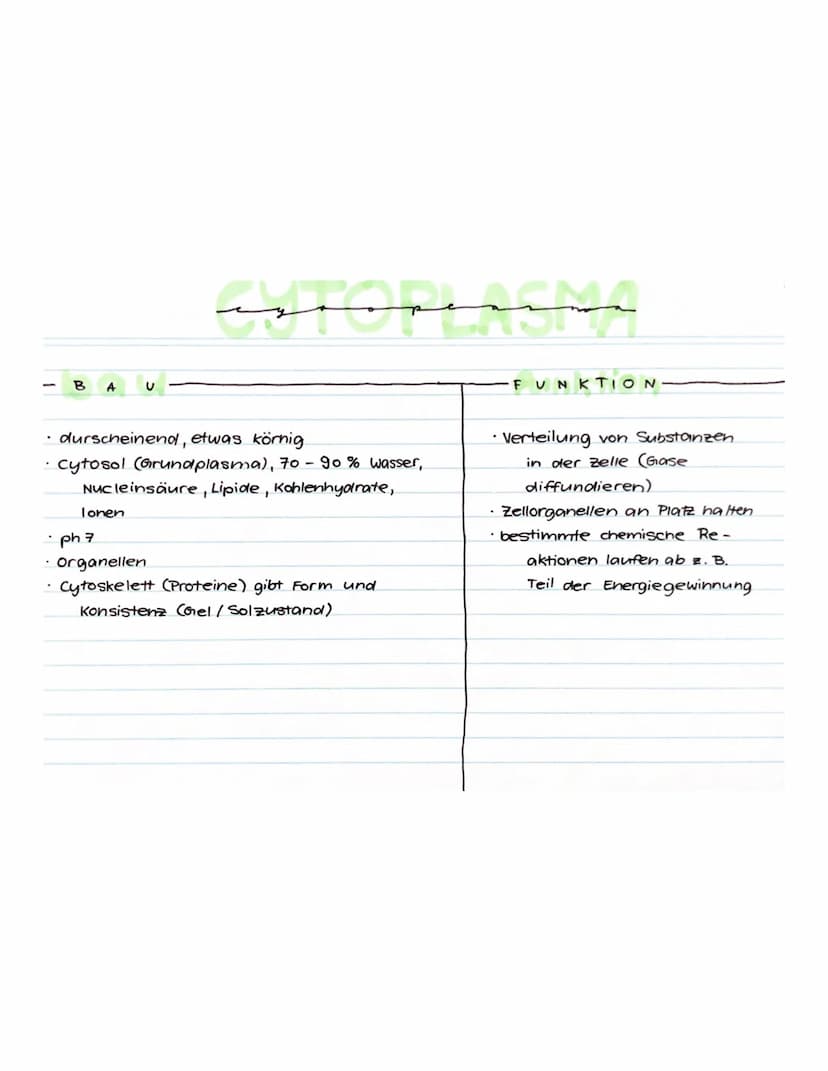 CYTOPLASMA
cytoplasma
BAU
FUNKTION
· durscheinend, etwas körnig
· Cytosol (Grundplasma), 70 - 90 % Wasser,
Nucleinsäure, Lipide, Kohlenhydrate,
Ionen
· ph 7
· Organellen
· Cytoskelett (Proteine) gibt Form und
Konsistenz (Gel / Solzustand)
· Verteilung von Substanzen
in der Zelle (Gase
diffundieren)
· Zellorganellen an Platz halten
· bestimmte chemische Re-
aktionen laufen ab z. B.
Teil der Energiegewinnung